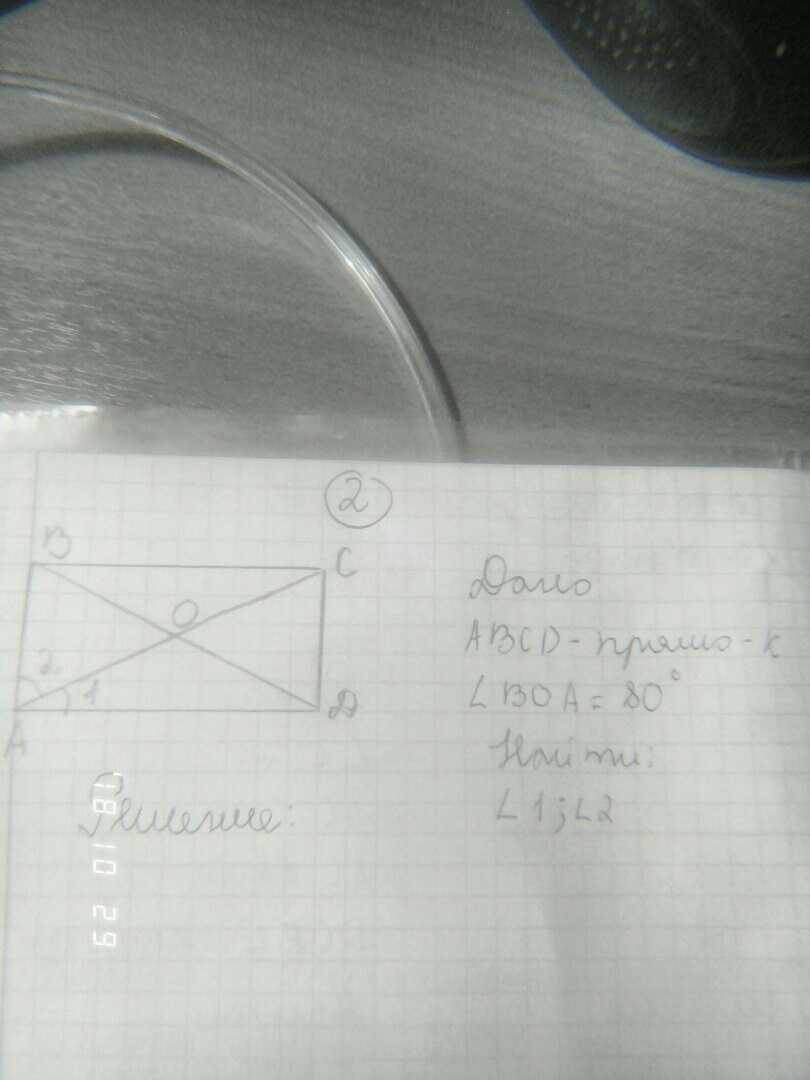 2
B
C
O
2
1
A
D
Дано
ABCD - прямо-к
∠BOA = 80°
Найти:
∠1; ∠2
Решение:
'18 10 29